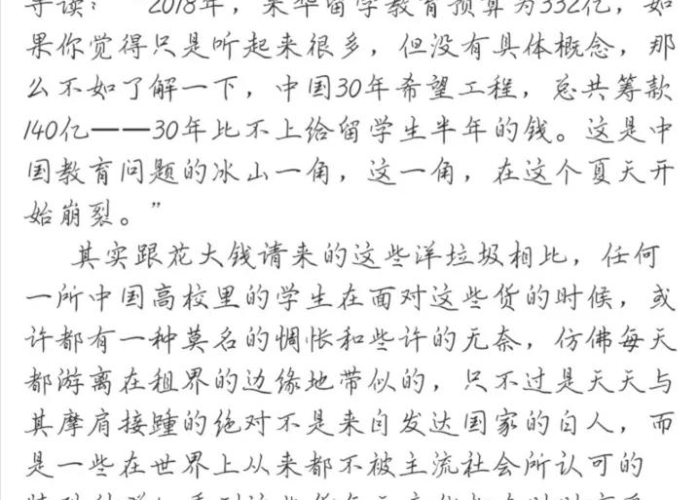 导读：“2018年，来华留学教育预算为332亿，如
果你觉得只是听起来很多，但没有具体概念，那
么不如了解一下，中国30年希望工程，总共筹款
140亿——30年比不上给留学生半年的钱。这是中
国教育问题的冰山一角，这一角，在这个夏天开
始崩裂。”
其实跟花大钱请来的这些洋垃圾相比，任何
一所中国高校里的学生在面对这些货的时候，或
许都有一种莫名的惆怅和些许的无奈，仿佛每天
都游离在租界的边缘地带似的，只不过是天天与
其摩肩接踵的绝对不是来自发达国家的白人，而
是一些在世界上从来都不被主流社会所认可的